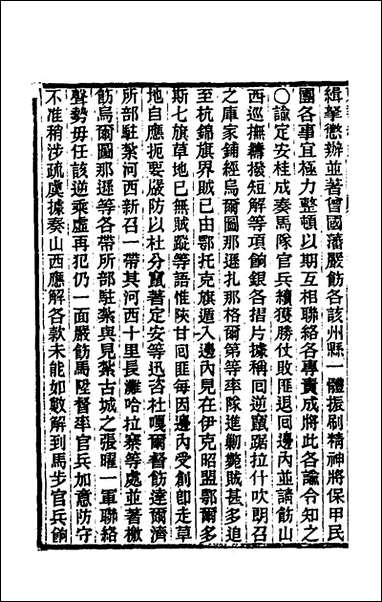 緝拏懲辦並著曾國藩嚴飭各該州縣一體振刷精神將保甲民
團各事宜極力整頓以期互相聯絡各專責成將此各諭令知之
○諭定安桂成奏馬隊官兵續獲勝仗敗匪退回邊內並請飭山
西巡撫籌撥短解等項餉銀各摺片據稱回逆竄踞拉什吹朗召
之庫家鋪經烏爾圖那遜扎那格爾第等率隊進勦斃賊甚多追
至杭錦旗界賊已由鄂托克旗遁入邊內見在伊克昭盟鄂爾多
斯七旗草地已無賊蹤等語惟陝甘回匪每因邊內受創卽走草
地自應扼要嚴防以杜分竄著定安等迅咨杜嘎爾督飭達爾濟
所部駐紮河西新召一帶其河西十里長灘哈拉寨等處並著檄
飭烏爾圖那遜等各帶所部駐紮與見紮古城之張曜一軍聯絡
聲勢毋任該逆乘虛再犯仍一面嚴飭馬陞督率官兵如意防守
不准稍涉疏虞據奏山西應解各款未能如數解到馬步官兵餉